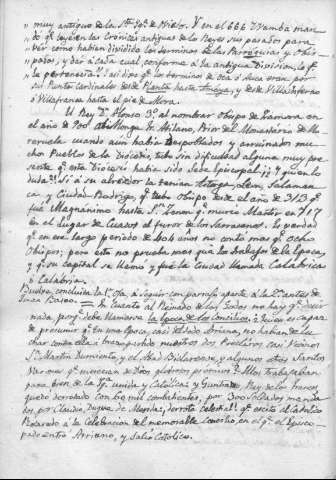 muy antiguo de la Sta. Iga. de Nieto. Y en el 666 Wamba man-
do qe. leyesen las Crónicas antiguas de los Reyes sus pasados para
ver como habian dividido los terminos de las Parroquias y Obis-
pados, y dar á cada cual conforme á la antigua Division, lo qe.
le pertenecia. Y asi dice qe. los terminos de oca ó Auca eran por
sus Puntos cardinales desde Planta hasta Amaya, y desde Villadeferro
ó Villafranca hasta el pie de Mora.
El Rey Dn. Alonso 3º. al nombrar Obispo de Zamora en
el año de 900 á Atilano, Prior del Monasterio de Mo-
reruela cuando aún habia despoblados y arruinados mu-
chos Pueblos de la Diocesis, tubo sin dificultad alguna muy pre-
sente qe. esta Diocesis habia sido Sede Episcopal ¿¡Y quien lo
duda?! Si á su alrededor la tenian Astorga, Leon, Salaman-
ca, y Ciudad-Rodrigo, qe. tubo Obispo desde el año de 313 qe.
fué Magnánimo hasta Sn. Zenon qe. murió Martir en 717
en el Lugar de al furor de los Sarracenos. Es verdad
qe. en ese largo periodo de 404 años no conto mas qe. ocho
Obispos; pero esto no prueba mas que los trabajos de la Epoca,
y qe. su capital se llamó y fué la Ciudad llamada Calabrica
ó Calabria.
concluida la á seguir con parrafo aparte á la
En cuanto al Reinado de los Godos no hay qe. decir
nada, porqe. debe llamarse la época de los Concilios: ¿Quien es capaz
de presumir qe. en una época, casi toda Arriana, no habian de lu-
char contra ella á brazo partido nuestros dos Preclaros casi Vecinos
Sn. Martin Dumiense y el Abad Biclarense, y algunos otros Santos
Varones qe. merecian á Dios gloriosos premios? Ellos trabajaban
para bien de la Yga. unida y Catolica; y Guntrando Rey de los francos
quedó derrotado con 60 mil combatientes, por 300 Soldados manda-
dos por Claudio, Duque de Merida; derrota celestial qe. escitó al Catolico
Recaredo á la Celebracion del memorable Concilio, en el qe. el Episco-
pado entró Arriano, y salió Catolico.